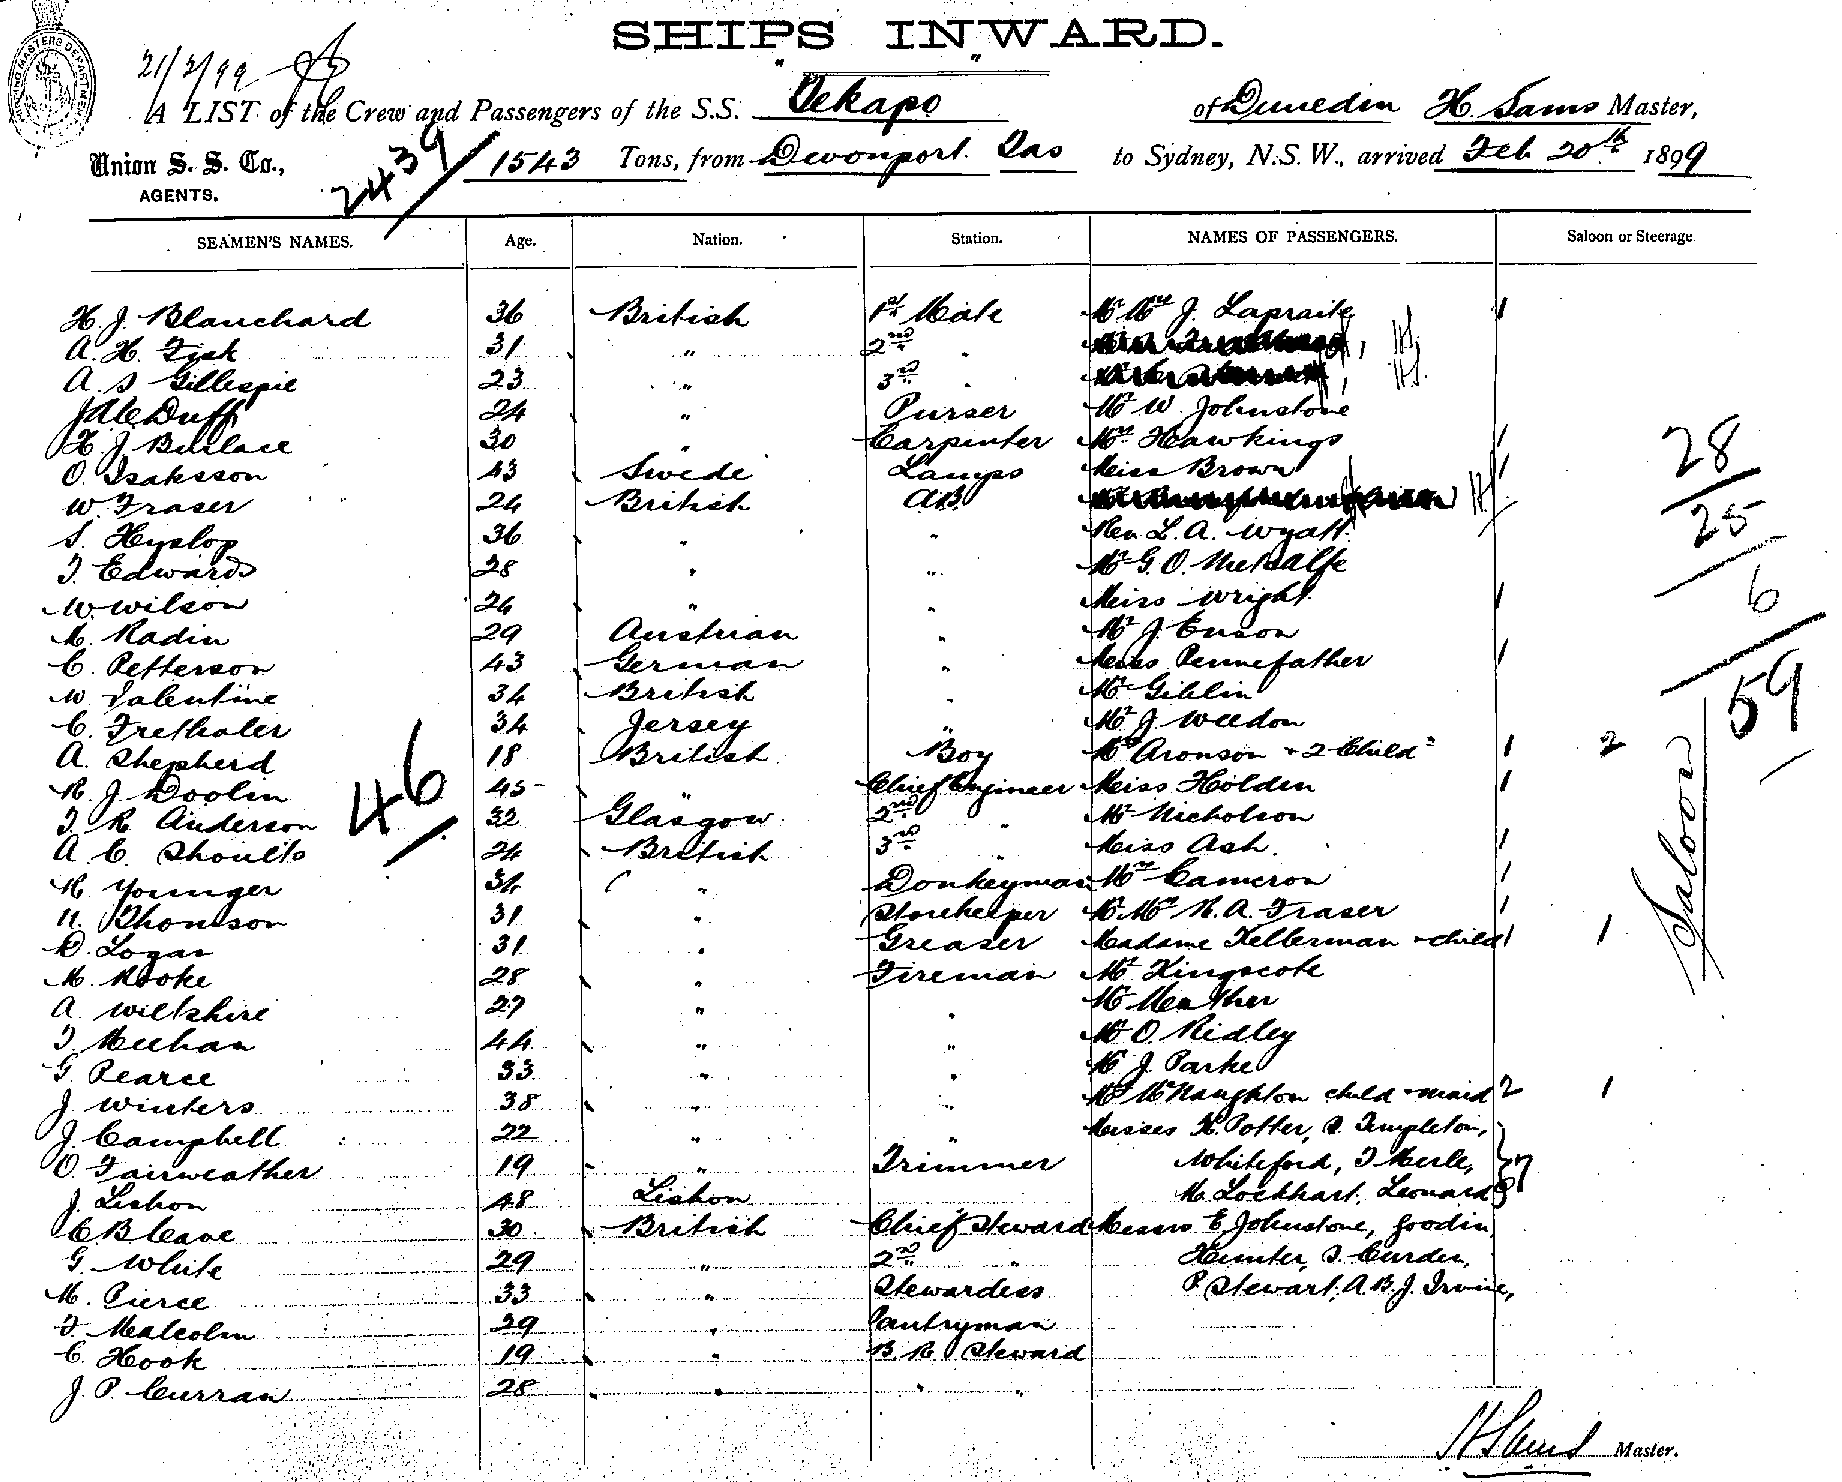 SHIPS INWARD.
21/2/99
A LIST of the Crew and Passengers of the S.S. Tekapo of Dunedin H. Sams Master,
Union S. S. Co., 1543 Tons, from Devonport. Tas to Sydney, N.S.W., arrived Feb 20th 1899
AGENTS.
2439
SEAMEN'S NAMES. Age. Nation. Station. NAMES OF PASSENGERS. Saloon or Steerage
H. J. Blanchard 36 British 1st Mate Mr Mrs J. Lapraite 1
A. H. Fisk 31 " 2nd "
A. S Gillespie 23 " 3rd "
Duff 24 " Purser Mr W. Johnstone
H. J. Burlace 30 " Carpenter Mrs Hawkings 1
O. Isaksson 43 Swede Lamps Miss Brown 1
W. Fraser 24 British AB
S. Hyslop 36 " " Rev L. A. Wyatt
T. Edwards 28 " " Mr G. O. Metcalfe
W. Wilson 26 " " Miss Wright 1
M. Radin 29 Austrian " Mr J. Enson
C. Petterson 43 German " Miss Pennefather 1
W Valentine 34 British " Mr Giblin
C. Frethaler 34 Jersey " Mr J. Weedon
A. Shepherd 18 British Boy Mrs Aronson + 2 Child 1 2
R. J. Doolin 45 " Chief Engineer Miss Holden 1
J. R. Anderson 32 Glasgow 2nd " Mr Nicholson
A C. Shoults 24 British 3rd " Miss Ash. 1
R. Younger 34 " Donkeyman Mrs Cameron 1
Thomson 31 " Storekeeper Mr Mrs R. A. Fraser 1
D. Logan 31 " Greaser Madame Kellerman + child 1 1
M. Rooke 28 " Fireman Mr Kingscote
A. Wiltshire 27 " " Mr
J. Meehan 44 " " Mr O. Ridley
G. Pearce 33 " " Mr J. Parke
J. Winters 38 " " Mrs McNaughton child + maid 2 1
J. Campbell 22 " " Misses H. Potter, S. Templeton,
O. Fairweather 19 " Trimmer Whiteford, J Merle,
J. Lisbon 48 Lisbon M. Lockhart, Leonard
C B Cave 30 British Chief Steward Messrs E Johnstone, Goodin
G. White 29 " 2nd " Hunter, S. Curden,
M. Pierce 33 " Stewardess P. Stewart, A. B. J. Irvine,
J. Malcolm 29 " Pantryman
C. Hook 19 " B. R. Steward
J. P. Curran 28 " " "
46
28
25
6
59
Saloon
H Sams Master.